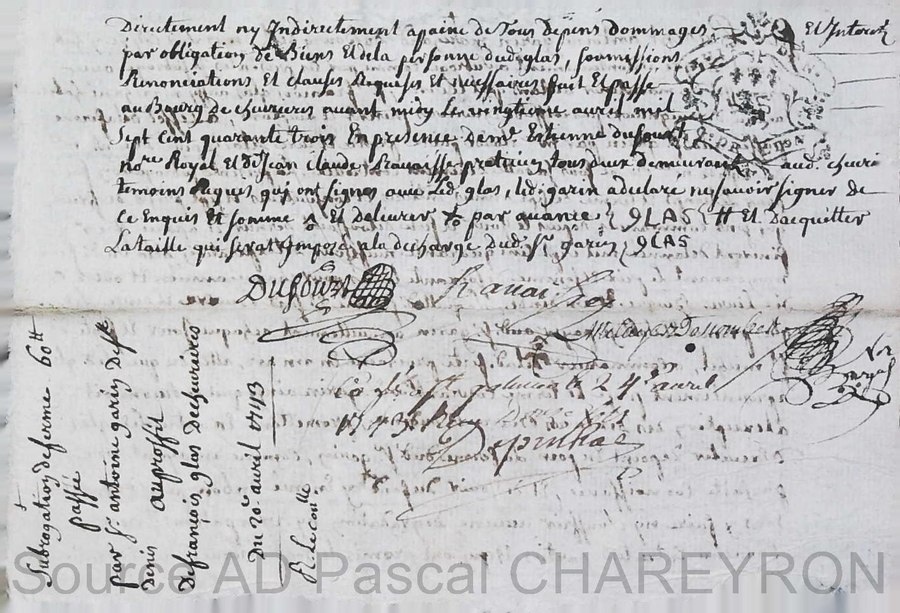 Directement ny Indirectement apaine de Tous depens dommages Et Interetz
par obligation de Biens Et dela personne dud. glas, soumissions
Renonciations Et clauses Requises et necessaires fait Et passé
au Bourg de chevrieres avant midy Le vingtieme avril mil
Sept Cent quarante trois En presence de me. Estienne dufourt
nore Royal Et de Jean claude Ravaisse praticien tous deux demeurant aud. chevri
temoins Requis, qui ont signes avec Led. glas, led. garin a declaré ne savoir signer de
ce Enquis Et sommé Et delivrer par avance GLAS Et Dacquitter
La taille qui serat Imposé a la decharge dud. Sr. garin GLAS
DUFOURT
Nore
Royal
24e avril
1743
Subrogation de ferme 60tt
passée
par Sr. antoine garin de St
Denis
au proffit
De françois glas de chevrieres
Du 20e avril 1743
Source AD Pascal CHAREYRON